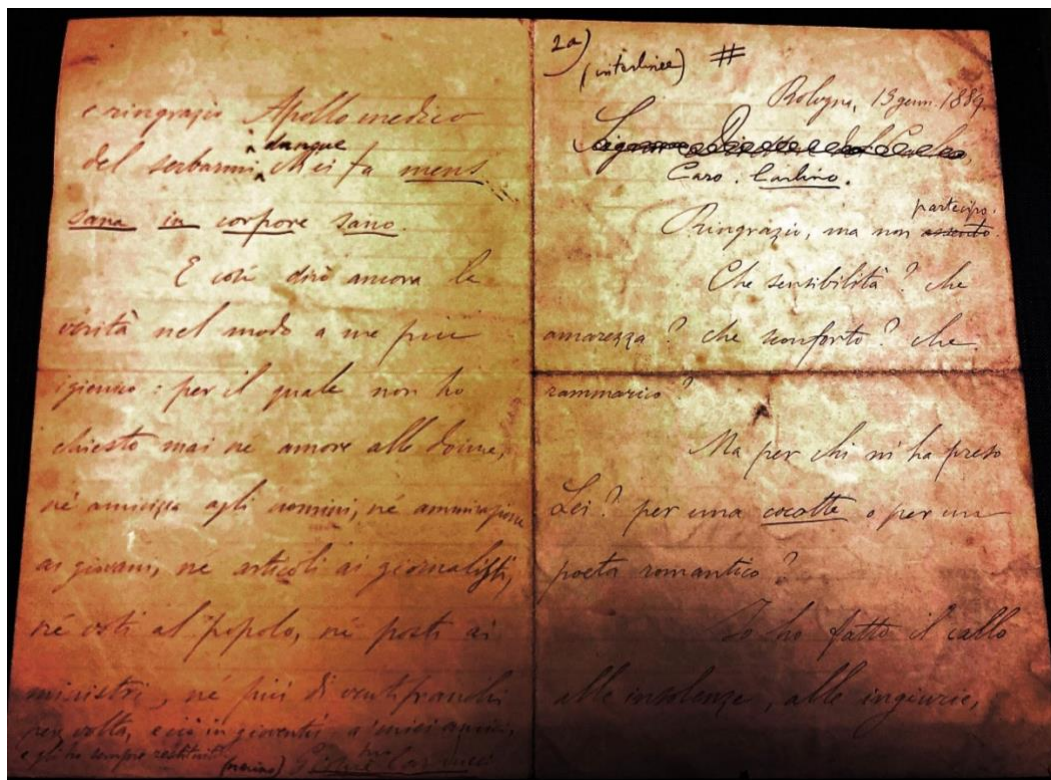 e ringrazio Apollo medico
dunque
del serbarmi fa mens
sana in corpore sano.
E così dirò ancora la
verità nel modo a me più
igienico: per il quale non ho
chiesto mai né amore alle donne,
né amicizia agli uomini, né ammirazione
ai giovani, né articoli ai giornalisti,
né voti al popolo, né posti ai
ministri, né più di venti franchi
per volta, e ciò in gioventù, a' miei amici,
e gli ho sempre restituiti
(nerino) Carducci
2a)
(interlinee) #
Bologna, 15 genn. 1889
Caro Carlino.
partecipo.
Ringrazio, ma non
Che sensibilità? che
amarezza? che sconforto? che
rammarico?
Ma per chi mi ha preso
Lei? per una cocotte o per un
poeta romantico?
Io ho fatto il callo
alle insolenze, alle ingiurie,